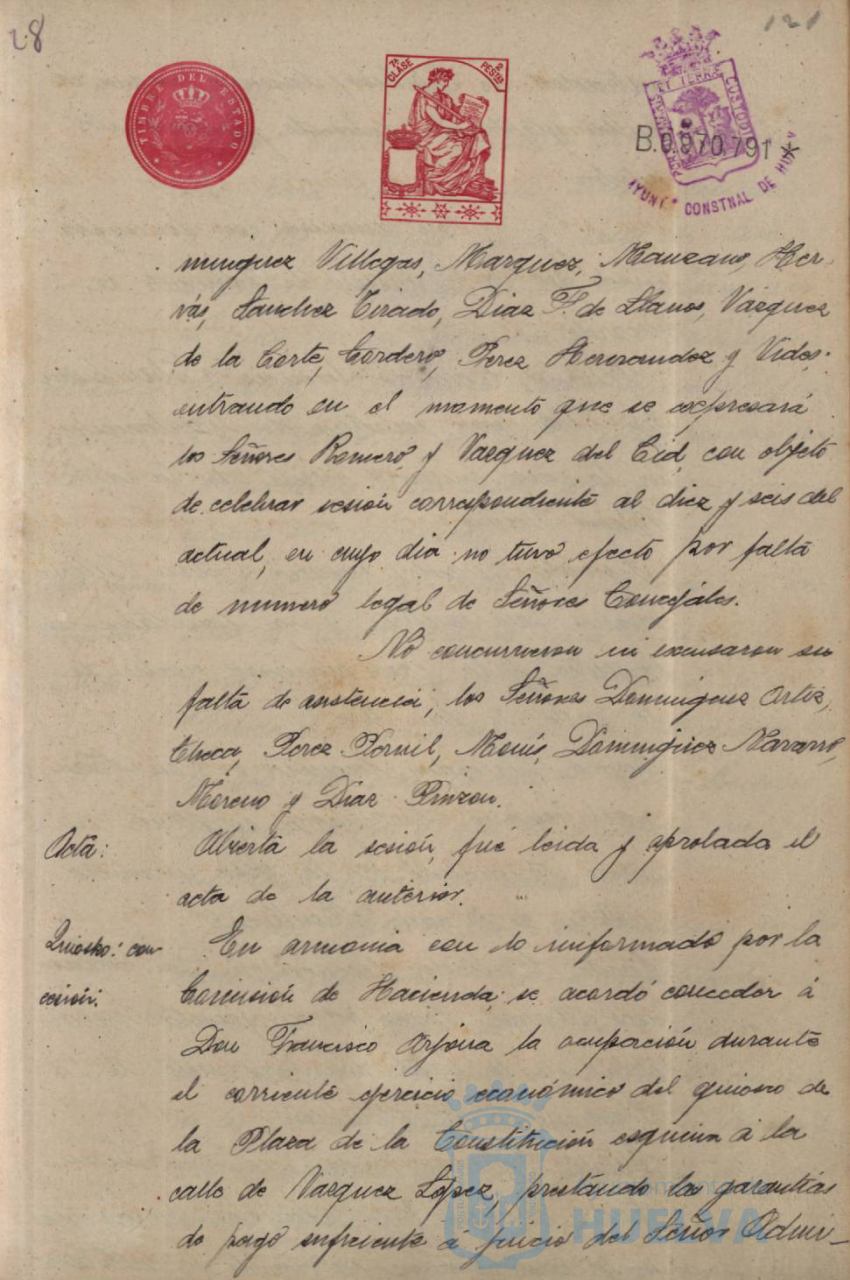 28
121
TIMBRE DEL ESTADO
7ª CLASE 2 PESTAS
ET TERRAE CUSTODIA
B.0.970.791 *
AYUNTº CONSTNAL DE HUELV
minguez Villegas, Marquez, Manzano, Her-
vás, Sanchez Tirado, Diaz F. de Llanos, Vazquez
de la Corte, Cordero, Perez Hernandez y Vides.
entrando en el momento que se expresará
los Señores Romero, y Vazquez del Cid, con objeto
de celebrar sesión correspondiente al diez y seis del
actual, en cuyo dia no tuvo efecto por falta
de numero legal de Señores Concejales.
No concurrieron ni excusaron su
falta de asistencia, los Señores Dominguez Ortiz,
Checa, Perez Pornil, Monís, Dominguez Navarro,
Moreno y Diaz Pinzon.
Acta:
Abierta la sesión, fué leida y aprobada el
acta de la anterior.
Quiosko: con-
cesión:
En armonia con lo informado por la
Comisión de Hacienda, se acordó conceder á
Don Francisco Arjona la ocupación durante
el corriente ejercicio económico del quiosco de
la Plaza de la Constitución esquina á la
calle de Vazquez López, prestando la garantias
de pago suficiente á juicio del Señor Admi-
HUELVA